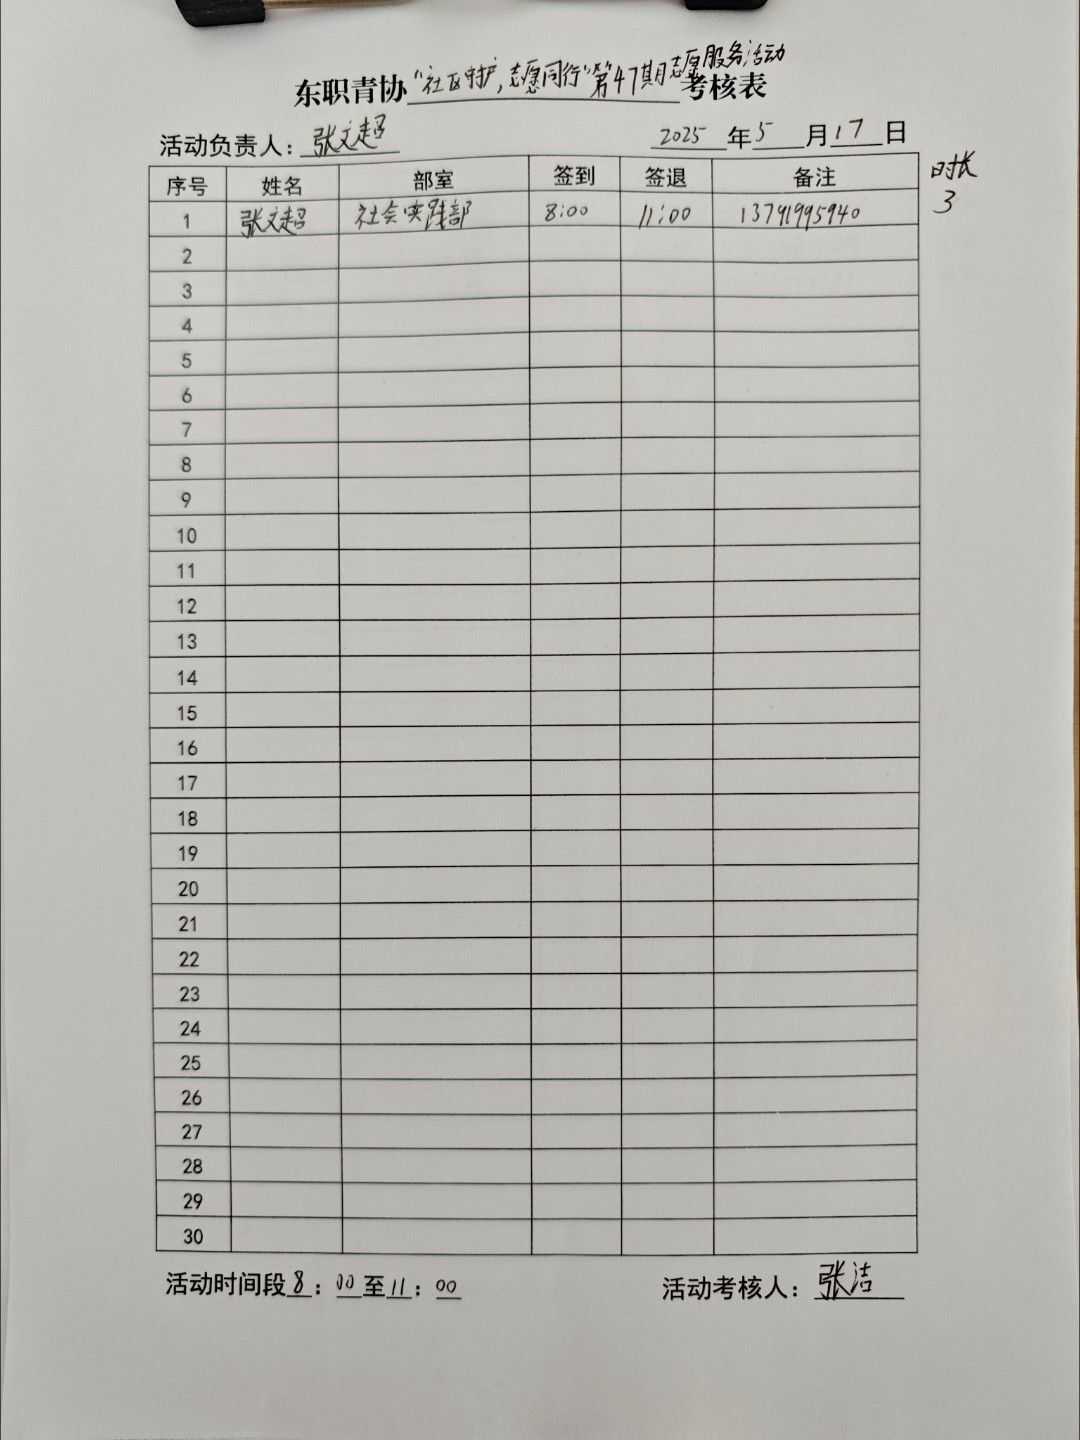 东职青协"社区守护,志愿同行"第47期志愿服务活动考核表
活动负责人：张文超 2025年5月17日
序号 姓名 部室 签到 签退 备注 时长
1 张文超 社会实践部 8:00 11:00 13791995940 3
2
3
4
5
6
7
8
9
10
11
12
13
14
15
16
17
18
19
20
21
22
23
24
25
26
27
28
29
30
活动时间段8：00至11：00 活动考核人：张洁